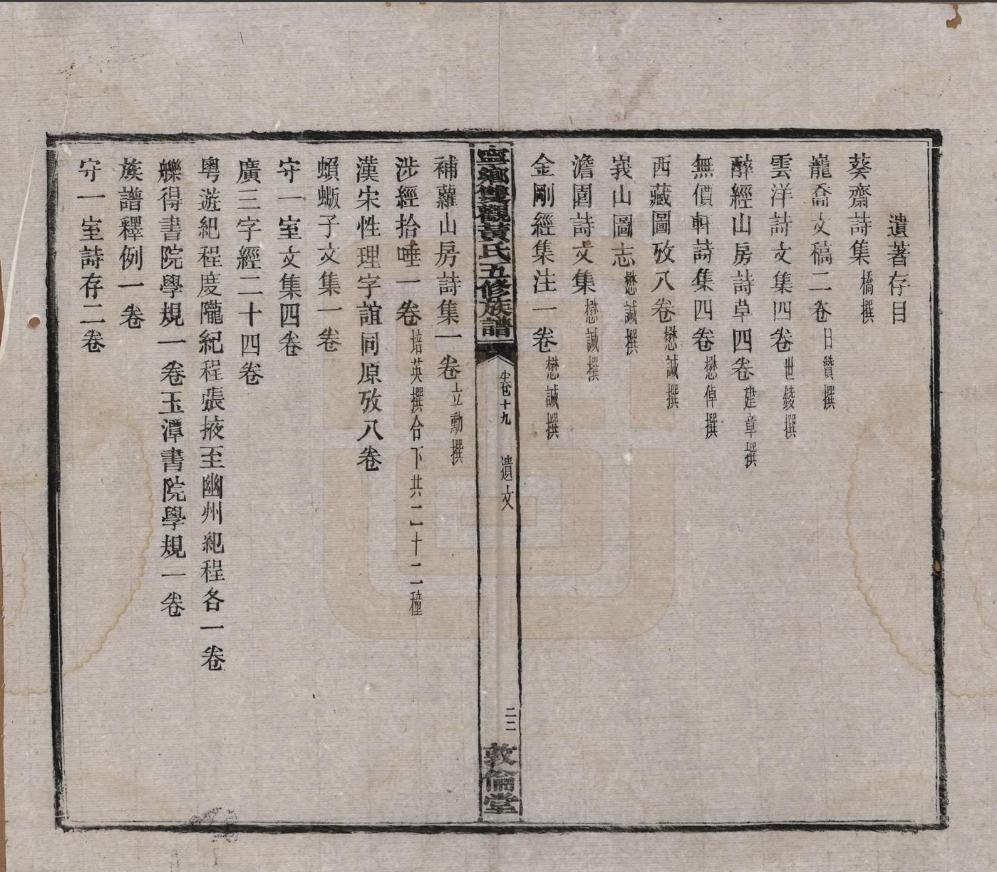 遺著存目
葵齋詩集橋撰
龍喬文稿二卷日贊撰
雲洋詩文集四卷世錂撰
醉經山房詩草四卷建章撰
無價軒詩集四卷懋倬撰
西藏圖攷八卷懋誠撰
峩山圖志懋誠撰
澹園詩文集懋誠撰
金剛經集注一卷懋誠撰
寧鄉雙觀黃氏五修族譜
卷十九 遺文
二二
敦倫堂
補蘿山房詩集一卷立勳撰
涉經拾唾一卷培英撰合下共二十二種
漢宋性理字誼同原攷八卷
蝜蝂子文集一卷
守一室文集四卷
廣三字經二十四卷
粵遊紀程度隴紀程張掖至幽州紀程各一卷
觻得書院學規一卷玉潭書院學規一卷
族譜釋例一卷
守一室詩存二卷